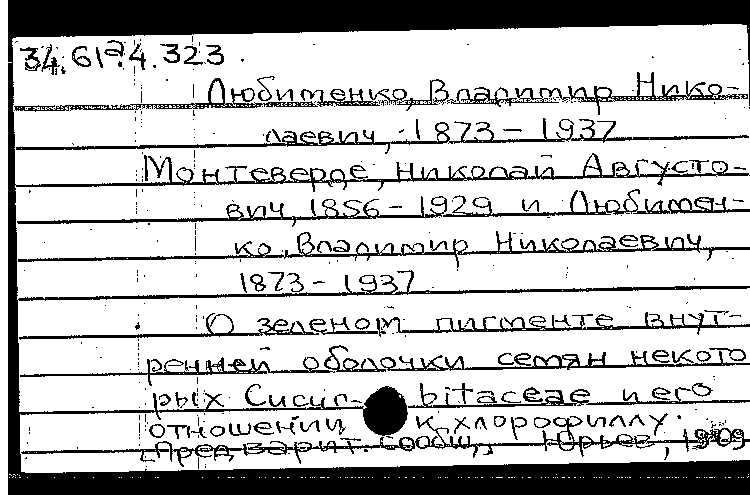 34.617.4.323.
Любименко, Владимир Нико-
лаевич, 1873-1937
Монтеверде, Николай Августо-
вич, 1856-1929 и Любимен-
ко, Владимир Николаевич,
1873-1937
О зеленом пигменте внут-
ренней оболочки семян некото
рых Cucur- bitaceae и его
отношении к хлорофиллу.
Предварит. сообщ., Юрьев, 1909